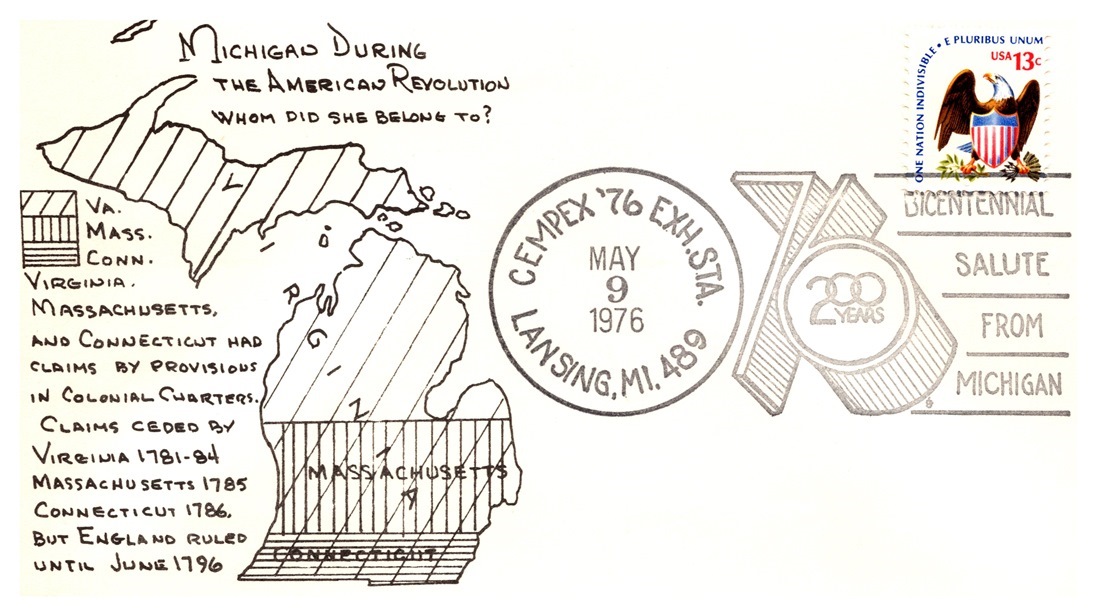 MICHIGAN DURING
THE AMERICAN REVOLUTION
WHOM DID SHE BELONG TO?
VA.
MASS.
CONN.
VIRGINIA.
MASSACHUSETTS,
AND CONNECTICUT HAD
CLAIMS BY PROVISIONS
IN COLONIAL CHARTERS.
CLAIMS CEDED BY
VIRGINIA 1781-84
MASSACHUSETTS 1785
CONNECTICUT 1786.
BUT ENGLAND RULED
UNTIL JUNE 1796
VIRGINIA
MASSACHUSETTS
CONNECTICUT
CEMPEX '76 EXH. STA.
MAY
9
1976
LANSING, MI. 489
76
200
YEARS
ONE NATION INDIVISIBLE • E PLURIBUS UNUM
USA 13c
BICENTENNIAL
SALUTE
FROM
MICHIGAN